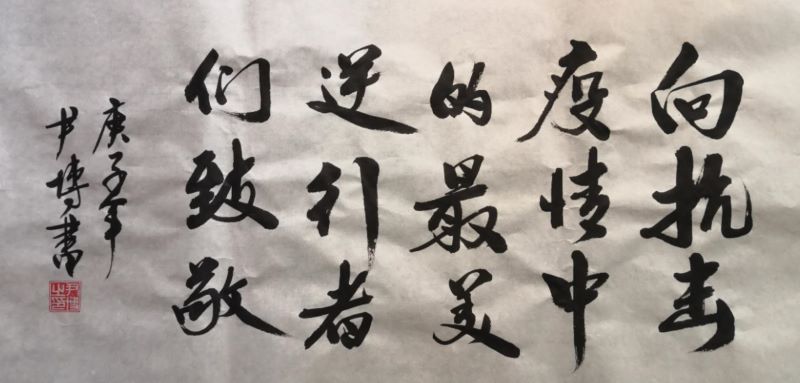 向抗击
疫情中
的最美
逆行者
们致敬
庚子年
尹博書
尹博之印